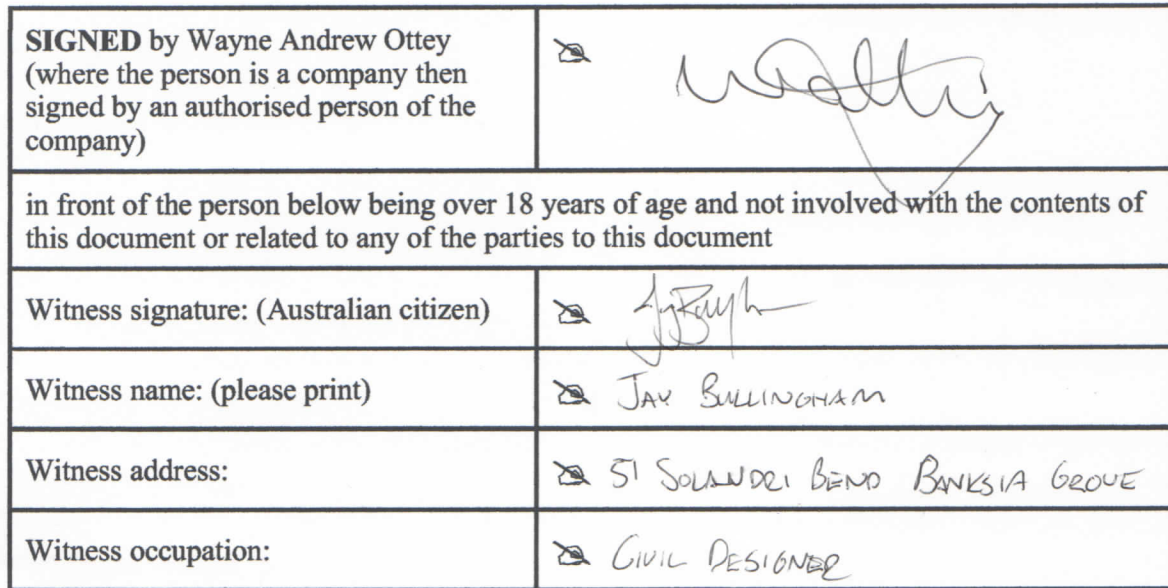 SIGNED by Wayne Andrew Ottey
(where the person is a company then
signed by an authorised person of the
company)
in front of the person below being over 18 years of age and not involved with the contents of
this document or related to any of the parties to this document
Witness signature: (Australian citizen)
Witness name: (please print) JAY BULLINGHAM
Witness address: 51 SOLANDRI BEND BANKSIA GROVE
Witness occupation: CIVIL DESIGNER